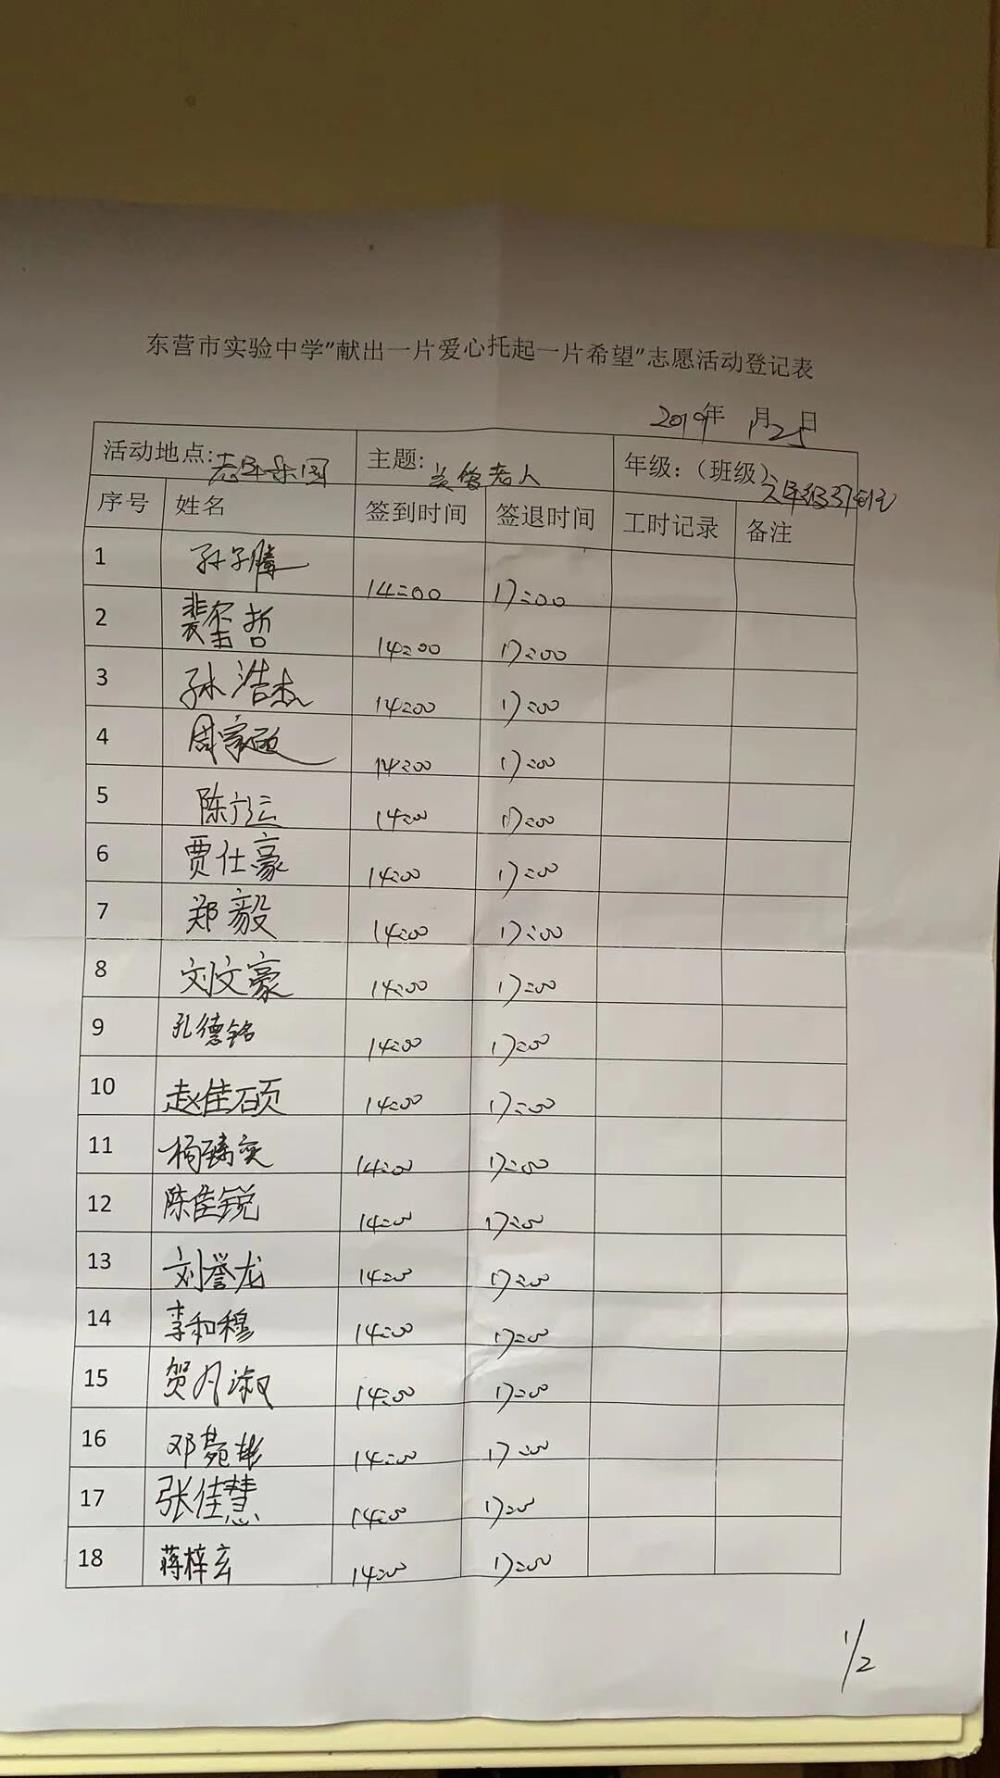 东营市实验中学"献出一片爱心托起一片希望"志愿活动登记表
2019年1月25日
活动地点: 老年乐园 主题: 关爱老人 年级：（班级）六年级37
序号 姓名 签到时间 签退时间 工时记录 备注
1 孙子腾 14:00 17:00
2 哲 14:00 17:00
3 孙浩杰 14:00 17:00
4 周家 14:00 17:00
5 陈 14:00 17:00
6 贾仕豪 14:00 17:00
7 郑毅 14:00 17:00
8 刘文豪 14:00 17:00
9 孔德铭 14:00 17:00
10 赵佳硕 14:00 17:00
11 杨臻奕 14:00 17:00
12 陈佳锐 14:00 17:00
13 刘誉龙 14:00 17:00
14 李和穆 14:00 17:00
15 贺凡淑 14:00 17:00
16 邓彬 14:00 17:00
17 张佳慧 14:00 17:00
18 蒋梓玄 14:00 17:00
1/2